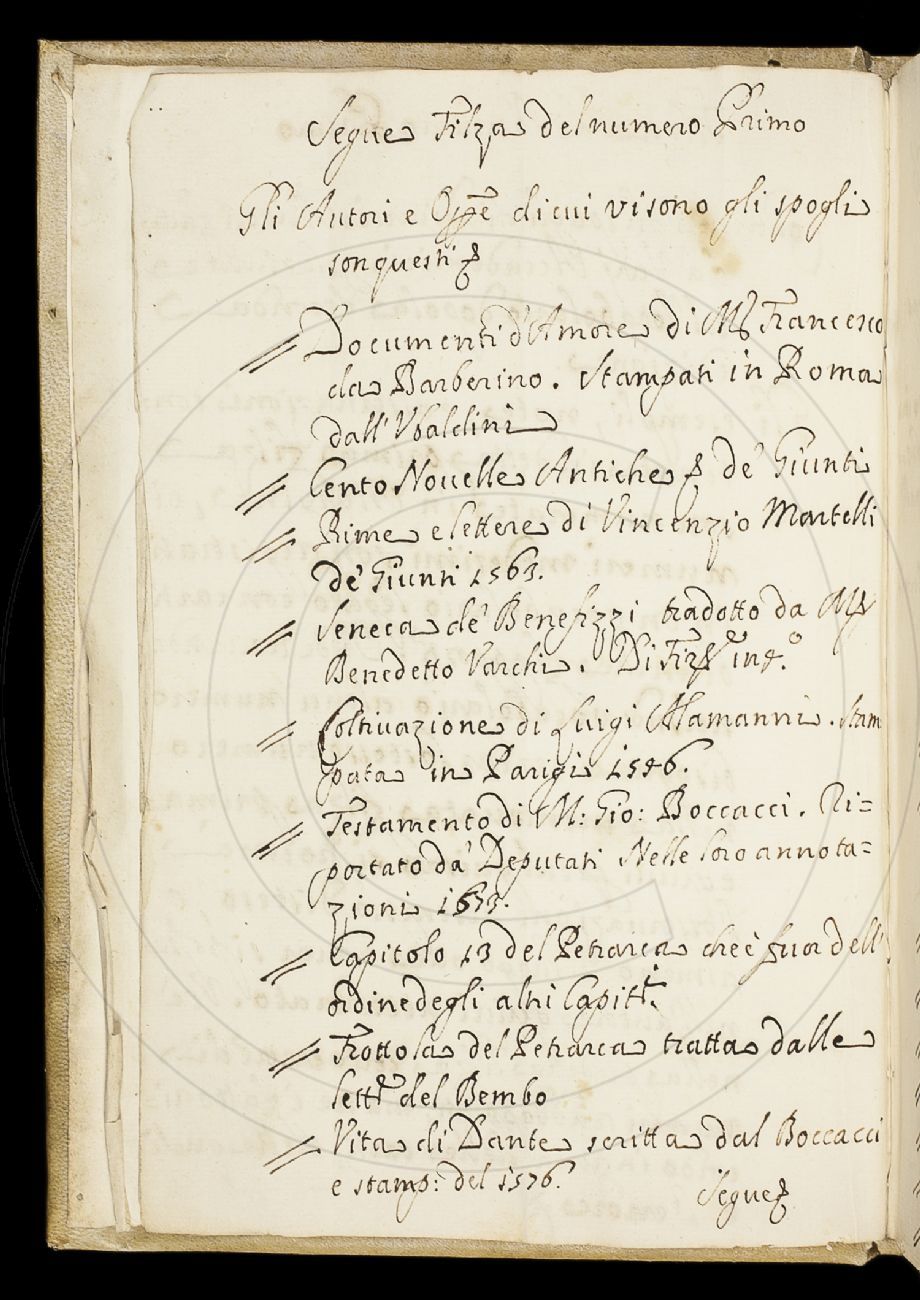 Segue Filza del numero Primo
Gli Autori e Opp̃e di cui vi sono gli spogli
son questi
// Documenti d'Amore di M. Francesco
da Barberino. Stampati in Roma
dall' Vbaldini
// Cento Novelle Antiche de' Giunti
// Rime e lettere di Vincenzio Martelli
de' Giunti 1563.
// Seneca de' Benefizzi tradotto da M.
Benedetto Varchi. Di Firze in 4.º
// Coltivazione di Luigi Alamanni. Stam
pata in Parigi 1546.
// Testamento di M: Gio: Boccacci. Ri=
portato da' Deputati Nelle loro annota=
zioni
// Capitolo 13 del Petrarca che è fuor dell'
ordine degli altri Capitli.
// Frottola del Petrarca tratta dalle
lettre del Bembo
// Vita di Dante scritta dal Boccacci
e stamp: del 1576.
Segue